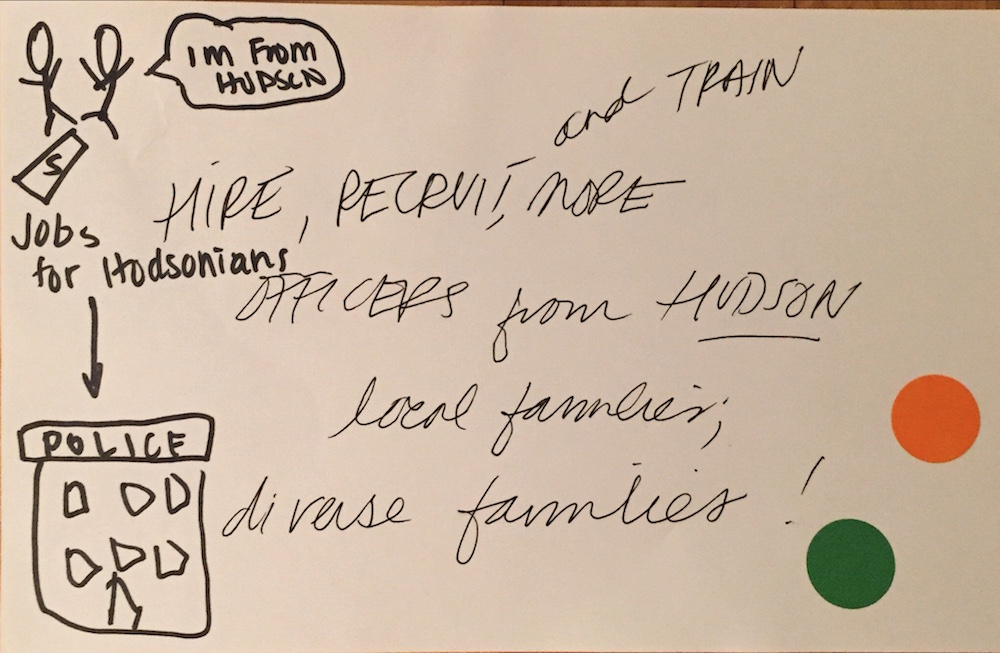 IM FROM
HUDSON
and TRAIN
HIRE, RECRUIT, MORE
OFFICERS from HUDSON
local families;
diverse families!
$
Jobs
for Hudsonians
POLICE